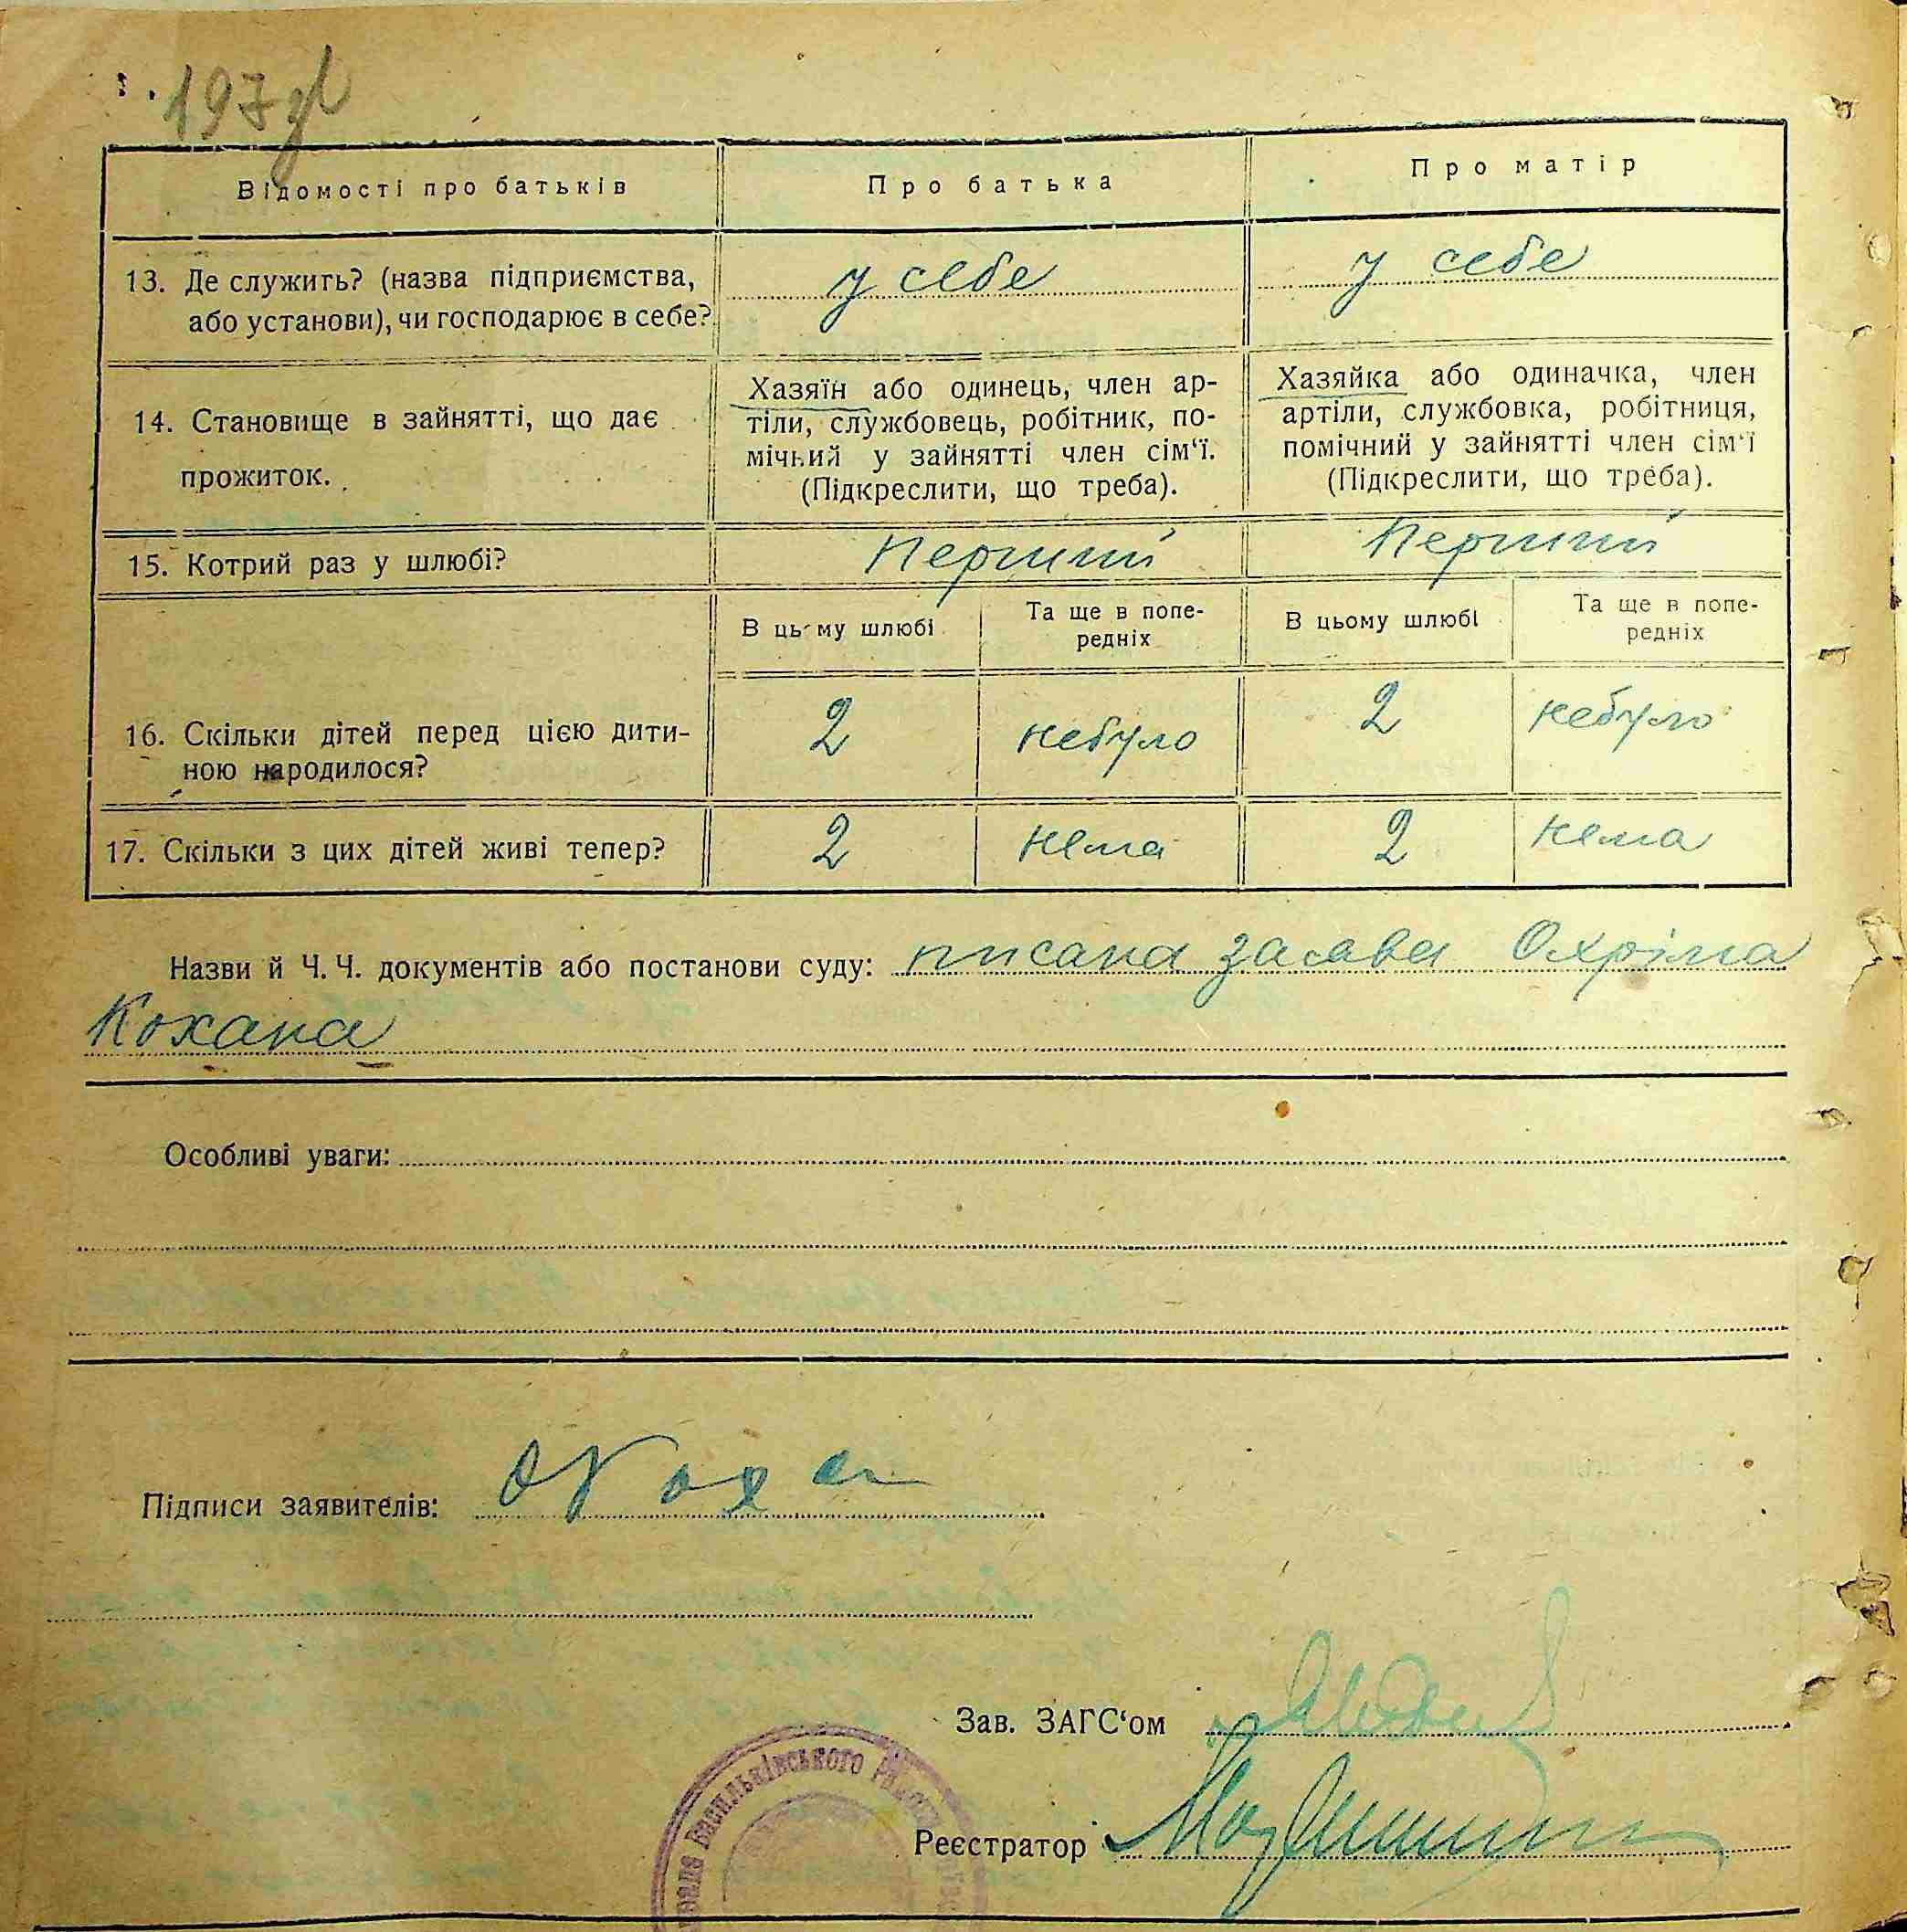 197
Відомості про батьків
Про батька
Про матір
13. Де служить? (назва підприємства,
або установи), чи господарює в себе?
у себе
у себе
14. Становище в зайнятті, що дає
прожиток.
Хазяїн або одинець, член ар-
тіли, службовець, робітник, по-
мічний у зайнятті член сім‘ї.
(Підкреслити, що треба).
Хазяйка або одиначка, член
артіли, службовка, робітниця,
помічний у зайнятті член сім‘ї
(Підкреслити, що треба).
15. Котрий раз у шлюбі?
Перший
Перший
В цьому шлюбі
Та ще в попе-
редніх
В цьому шлюбі
Та ще в попе-
редніх
16. Скільки дітей перед цією дити-
ною народилося?
2
небуло
2
небуло
17. Скільки з цих дітей живі тепер?
2
нема
2
нема
Назви й Ч. Ч. документів або постанови суду: писана заява Охріма
Кохана
Особливі уваги:
Підписи заявителів:
Зав. ЗАГС‘ом
Васильківського
Реєстратор